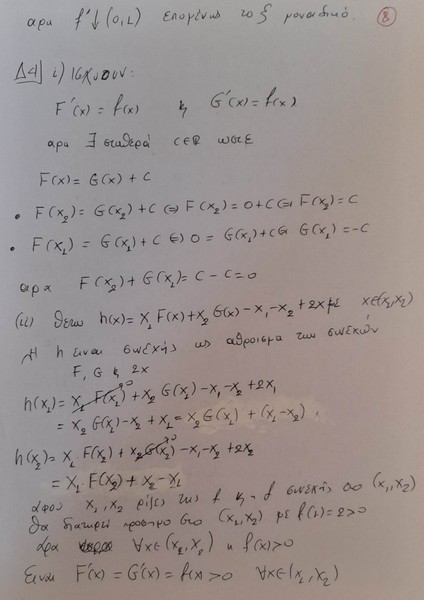 αρα f'↓ (0,2) επομένως το ξ μοναδικό. 8
Δ4 i) Ισχυουν:
F'(x) = f(x) & G'(x) = f(x)
αρα ∃ σταθερά c∈ℝ ωστε
F(x) = G(x) + C
• F(x₂) = G(x₂) + C ⇔ F(x₂) = 0 + C ⇔ F(x₂) = C
• F(x₁) = G(x₁) + C ⇔ 0 = G(x₁) + C ⇔ G(x₁) = -C
αρα F(x₂) + G(x₁) = C - C = 0
(ii) θετω h(x) = x₁ F(x) + x₂ G(x) - x₁ - x₂ + 2x με x∈(x₁,x₂)
Η h ειναι συνεχής ως αθροισμα των συνεχών
F, G & 2x
h(x₁) = x₁ F(x₁)⁰ + x₂ G(x₁) - x₁ - x₂ + 2x₁
= x₂ G(x₁) - x₂ + x₁ = x₂ G(x₁) + (x₁ - x₂)
h(x₂) = x₁ F(x₂) + x₂ G(x₂)⁰ - x₁ - x₂ + 2x₂
= x₁ F(x₂) + x₂ - x₁
αφου x₁, x₂ ρίζες της f & η f συνεχής στο (x₁, x₂)
θα διατηρεί προσημο στο (x₁, x₂) με f(1) = 2 > 0
Άρα ∀x∈(x₁, x₂) η f(x) > 0
Ειναι F'(x) = G'(x) = f(x) > 0 ∀x∈(x₁, x₂)